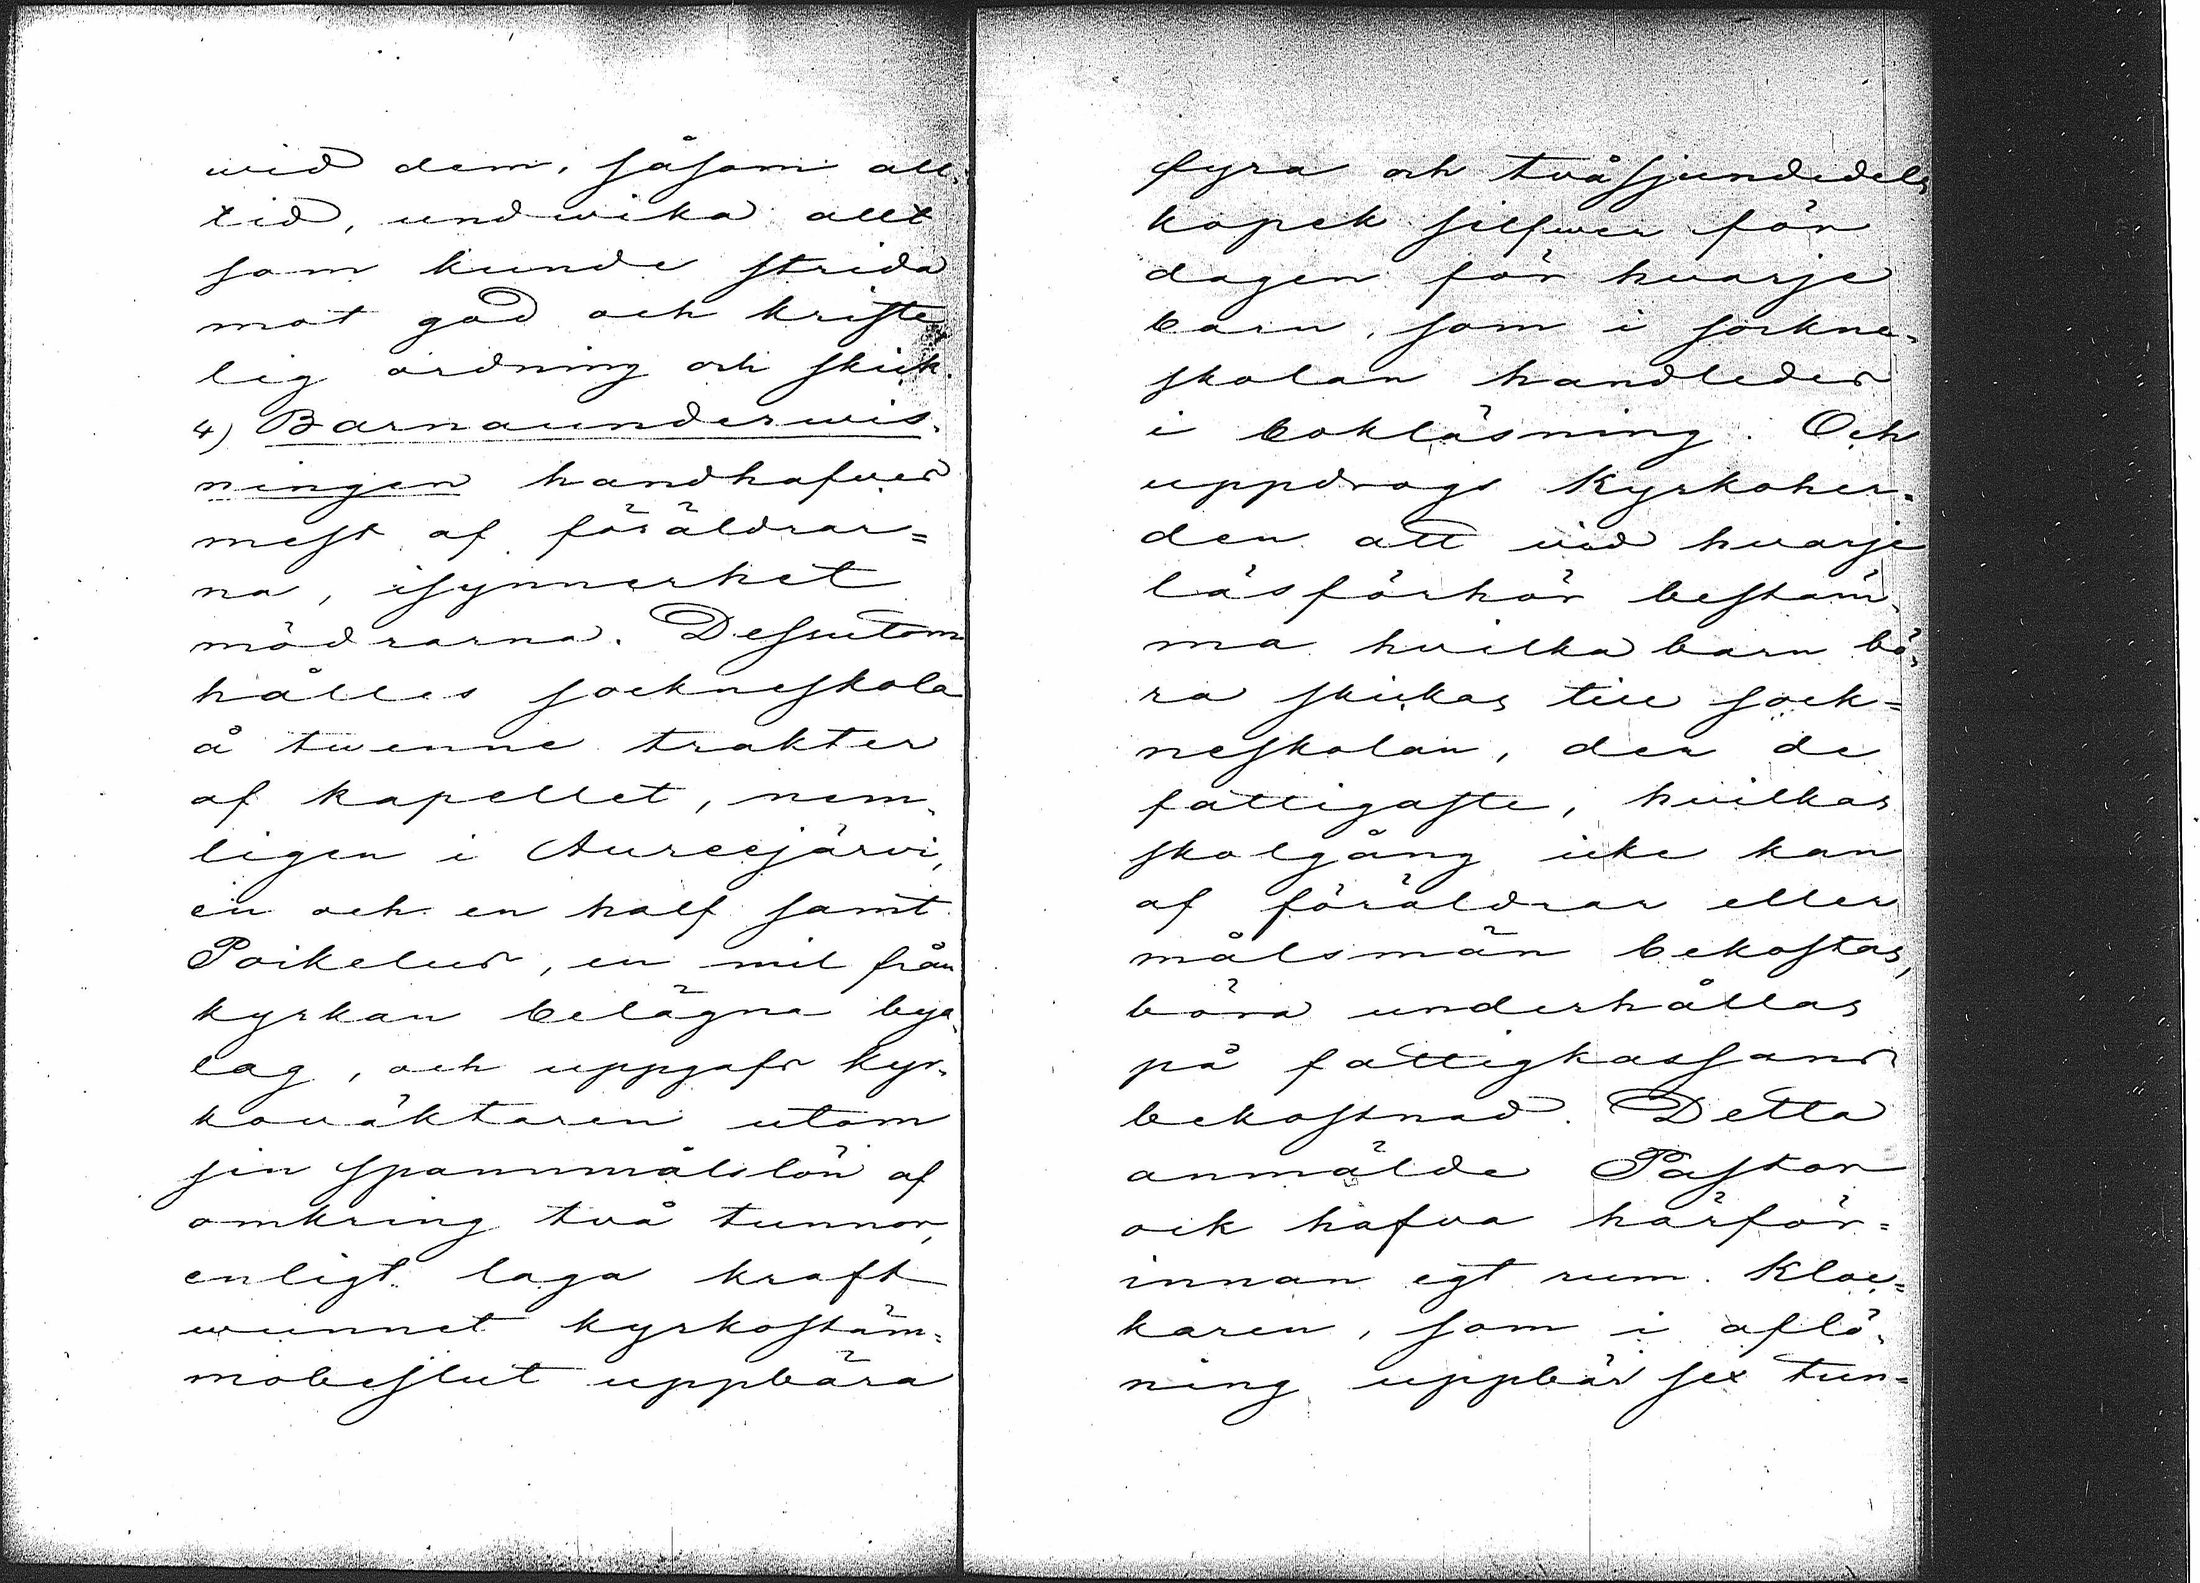 wid dem, såsom all-
tid, undwika allt
som kunde strida
mot god och kriste-
lig ordning och skick.
4) Barnaunderwis-
ningen handhafves
mest af föräldrar=
na, isynnerhet
mödrarna. Dessutom
hålles sockneskola
å twenne trakter
af kapellet, nem-
ligen i Aureejärvi,
en och en half samt
Poikelus, en mil från
kyrkan belägna bya-
lag, och uppgafs kyr-
kowäktaren utom
sin spannmålslön af
omkring två tunnor,
enligt laga kraft
wunnet kyrkostäm=
mobeslut uppbära
fyra och tvåsjundedels
kopek silfwer för
dagen för hvarje
barn, som i sockne-
skolan handledes
i bokläsning. Och
uppdrogs Kyrkoher=
den att vid hvarje
läsförhör bestäm-
ma hvilka barn bö-
ra skickas till sock=
neskolan, der de
fattigaste, hvilkas
skolgång icke kan
af föräldrar eller
målsmän bekostas,
böra underhållas
på fattigkassans
bekostnad. Detta
anmälde Pastor
ock hafva härför=
innan egt rum. Kloc=
karen, som i aflö-
ning uppbär sex tun=